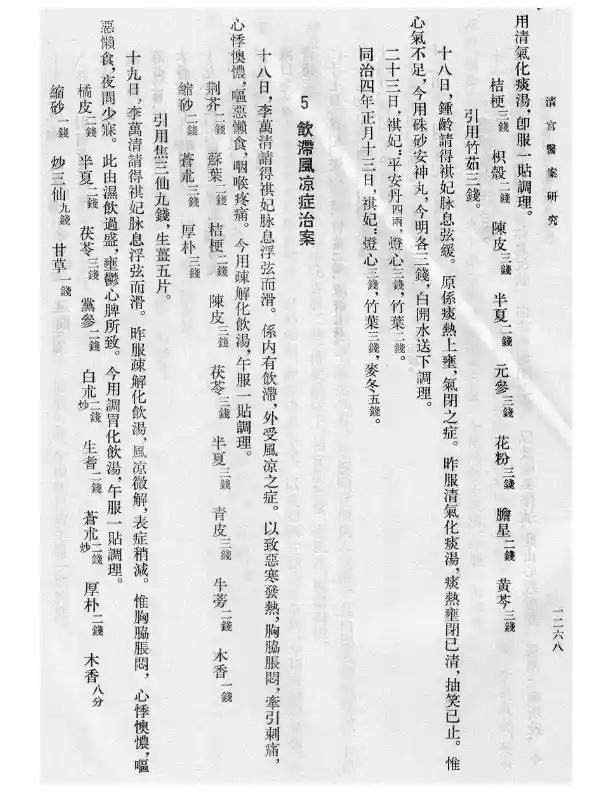 清宮醫案研究
一二六八
用清氣化痰湯，卽服一貼調理。
桔梗三錢 枳殼二錢 陳皮三錢 半夏二錢 元參三錢 花粉三錢 膽星二錢 黃芩三錢
引用竹茹三錢。
十八日，鍾齡請得祺妃脉息弦緩。原係痰熱上壅，氣閉之症。昨服清氣化痰湯，痰熱壅閉已清，抽笑已止。惟
心氣不足，今用硃砂安神丸，今明各三錢，白開水送下調理。
二十三日，祺妃：平安丹四兩，燈心三錢，竹葉二錢。
同治四年正月十三日，祺妃：燈心三錢，竹葉三錢，麥冬五錢。
5 飲滯風凉症治案
十八日，李萬清請得祺妃脉息浮弦而滑。係内有飲滯，外受風凉之症。以致惡寒發熱，胸脇脹悶，牽引刺痛，
心悸懊憹，嘔惡懶食，咽喉疼痛。今用疎解化飲湯，午服一貼調理。
荆芥二錢 蘇葉二錢 桔梗二錢 陳皮三錢 茯苓三錢 半夏三錢 青皮三錢 牛蒡二錢 木香一錢
縮砂二錢 蒼朮三錢 厚朴三錢
引用焦三仙九錢，生薑五片。
十九日，李萬清請得祺妃脉息浮弦而滑。昨服疎解化飲湯，風凉微解，表症稍減。惟胸脇脹悶，心悸懊憹，嘔
惡懶食，夜間少寐。此由濕飲過盛，壅鬱心脾所致。今用調胃化飲湯，午服一貼調理。
橘皮二錢 半夏二錢 茯苓三錢 黨參二錢 白朮炒二錢 生耆二錢 蒼朮炒二錢 厚朴二錢 木香八分
縮砂一錢 炒三仙九錢 甘草一錢